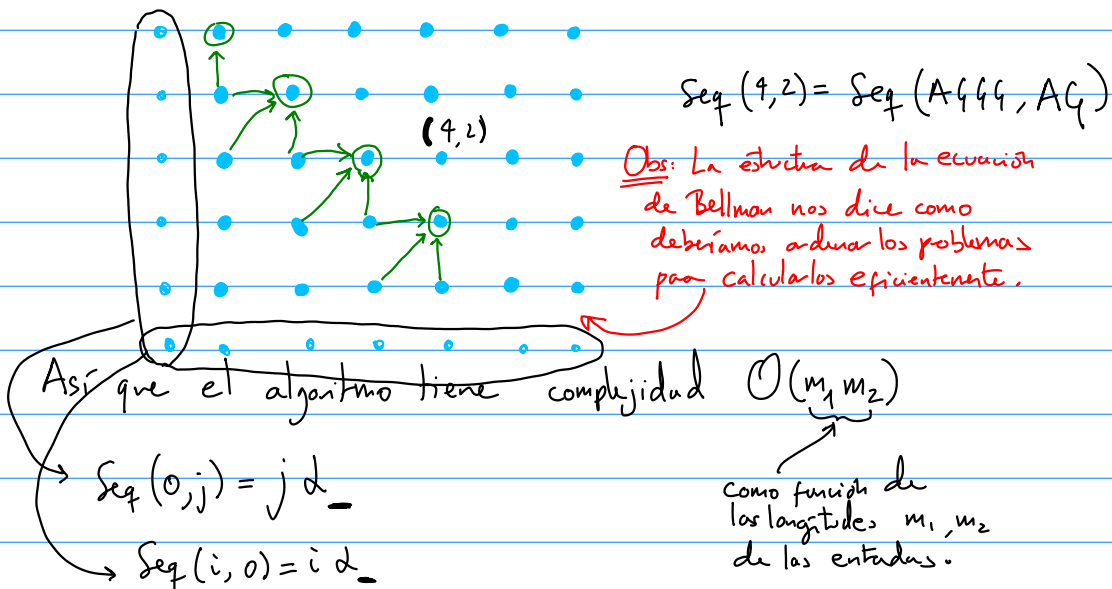 Seq (4,2) = Seq (AGGG, AG)
(4,2)
Obs: La estructra de la ecuación
de Bellman nos dice como
deberíamos ordenar los problemas
para calcularlos eficientemente.
Así que el algoritmo tiene complejidad O(m₁ m₂)
Seq (0,j) = j α_
Seq (i, 0) = i α_
como función de
las longitudes m₁, m₂
de las entradas.